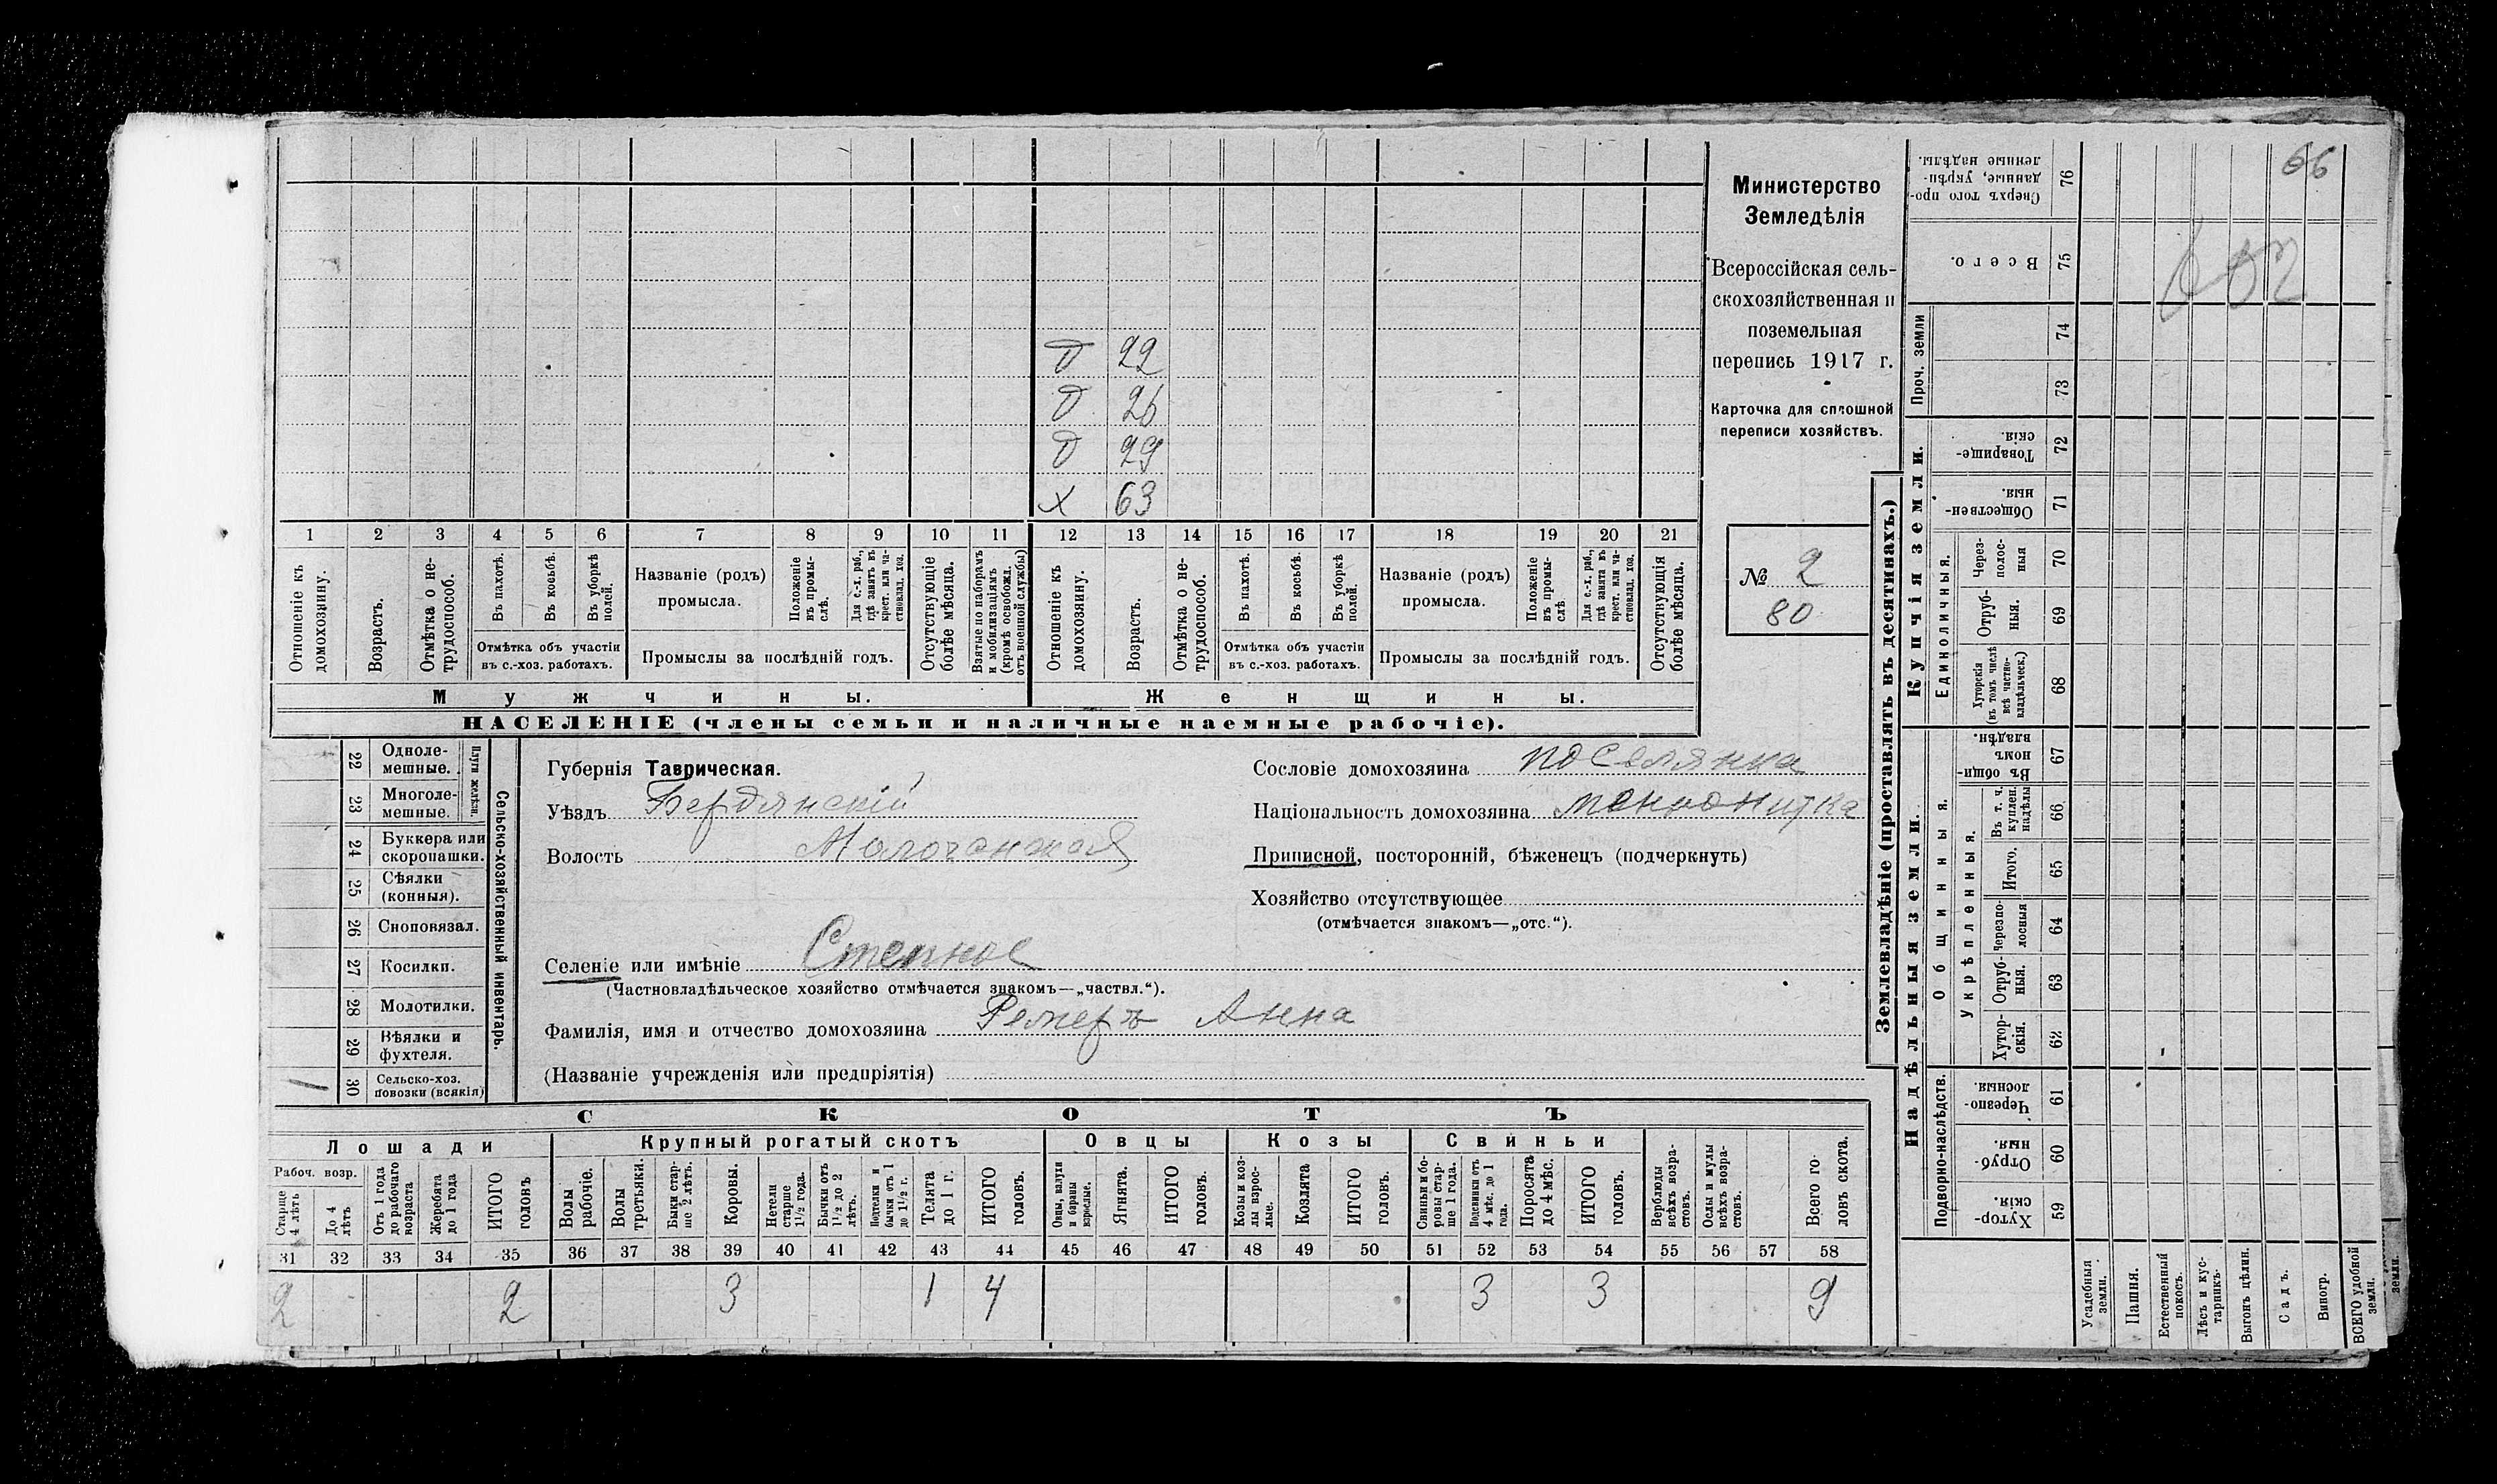 66
Министерство
Земледѣлія
Всероссійская сель-
скохозяйственная и
поземельная
перепись 1917 г.
Карточка для сплошной
переписи хозяйствъ.
№ 2
80
Д 22
Д 26
Д 29
х 63
1 2 3 4 5 6 7 8 9 10 11 12 13 14 15 16 17 18 19 20 21
Отношеніе къ домохозяину.
Возрастъ.
Отмѣтка о не-трудоспособ.
Въ пахотѣ.
Въ косьбѣ.
Въ уборкѣ полей.
Отмѣтка объ участіи
въ с.-хоз. работахъ.
Названіе (родъ)
промысла.
Положеніе въ промы-слѣ.
Для с.-х. раб., гдѣ занятъ въ крест. или ча-стновлад. хоз.
Промыслы за послѣдній годъ.
Отсутствующіе болѣе мѣсяца.
Взятые по наборамъ и мобилизаціямъ (кромѣ освобожд. отъ военной службы)
Отношеніе къ домохозяину.
Возрастъ.
Отмѣтка о не-трудоспособ.
Въ пахотѣ.
Въ косьбѣ.
Въ уборкѣ полей.
Отмѣтка объ участіи
въ с.-хоз. работахъ.
Названіе (родъ)
промысла.
Положеніе въ промы-слѣ
Для с.-х. раб., гдѣ занята въ крест. или ча-стновлад. хоз.
Промыслы за послѣдній годъ.
Отсутствующія болѣе мѣсяца.
Мужчины. Женщины.
НАСЕЛЕНІЕ (члены семьи и наличные наемные рабочіе).
22 Одноле-мешные.
23 Многоле-мешные.
Плуги желѣзн.
24 Буккера или скоропашки.
25 Сѣялки (конныя).
26 Сноповязал.
27 Косилки.
28 Молотилки.
29 Вѣялки и фухтеля.
30 Сельско-хоз. повозки (всякія)
Сельско-хозяйственный инвентарь.
Губернія Таврическая.
Уѣздъ Бердянскій
Волость Молочанская
Селеніе или имѣніе Степное
(Частновладѣльческое хозяйство отмѣчается знакомъ—„частвл.“).
Фамилія, имя и отчество домохозяина Ремеръ Анна
(Названіе учрежденія или предпріятія)
Сословіе домохозяина поселянка
Національность домохозяина менонитка
Приписной, посторонній, бѣженецъ (подчеркнуть)
Хозяйство отсутствующее
(отмѣчается знакомъ—„отс.“).
СКОТЪ
Лошади Крупный рогатый скотъ Овцы Козы Свиньи
Рабоч. возр.
Старше 4 лѣтъ
До 4 лѣтъ
Отъ 1 года до рабочаго возраста
Жеребята до 1 года
ИТОГО головъ
Волы рабочіе.
Волы третьяки.
Быки стар-ше 2 лѣтъ.
Коровы.
Нетели старше 1½ года.
Бычки отъ 1½ до 2 лѣтъ.
Подтелки и бычки отъ 1 до 1½ г.
Телята до 1 г.
ИТОГО головъ.
Овцы, валухи и бараны взрослые.
Ягнята.
ИТОГО головъ.
Козы и коз-лы взрос-лые.
Козлята
ИТОГО головъ.
Свиньи и бо-ровы стар-ше 1 года.
Подсвинки отъ 4 мѣс. до 1 года.
Поросята до 4 мѣс.
ИТОГО головъ.
Верблюды всѣхъ возра-стовъ.
Ослы и мулы всѣхъ возра-стовъ.
Всего го-ловъ скота.
31 32 33 34 35 36 37 38 39 40 41 42 43 44 45 46 47 48 49 50 51 52 53 54 55 56 57 58
2 2 3 1 4 3 3 9
Землевладѣніе (проставлять въ десятинахъ.)
Купчія земли.
Надѣльныя земли.
Сверхъ того про-данные, укрѣп-ленные надѣлы. 76
Всего. 75
Проч. земли 74 73
Товарище-скія. 72
Обществен-ныя. 71
Единоличныя.
Через-полос-ныя 70
Отруб-ныя. 69
Хуторскія (въ томъ числѣ всѣ частно-владѣльческ.) 68
Общинныя.
Въ общин-номъ владѣн. 67
Укрѣпленныя.
Въ т. ч. куплен. надѣлы 66
Итого. 65
Черезпо-лосныя 64
Отруб-ныя. 63
Хутор-скія. 62
Подворно-наслѣдств.
Черезпо-лосныя. 61
Отруб-ныя. 60
Хутор-скія. 59
Усадебныя земли.
Пашня.
Естественный покосъ.
Лѣсъ и кус-тарникъ.
Выгонъ цѣлин.
Садъ.
Виногр.
ВСЕГО удобной земли.
земли.